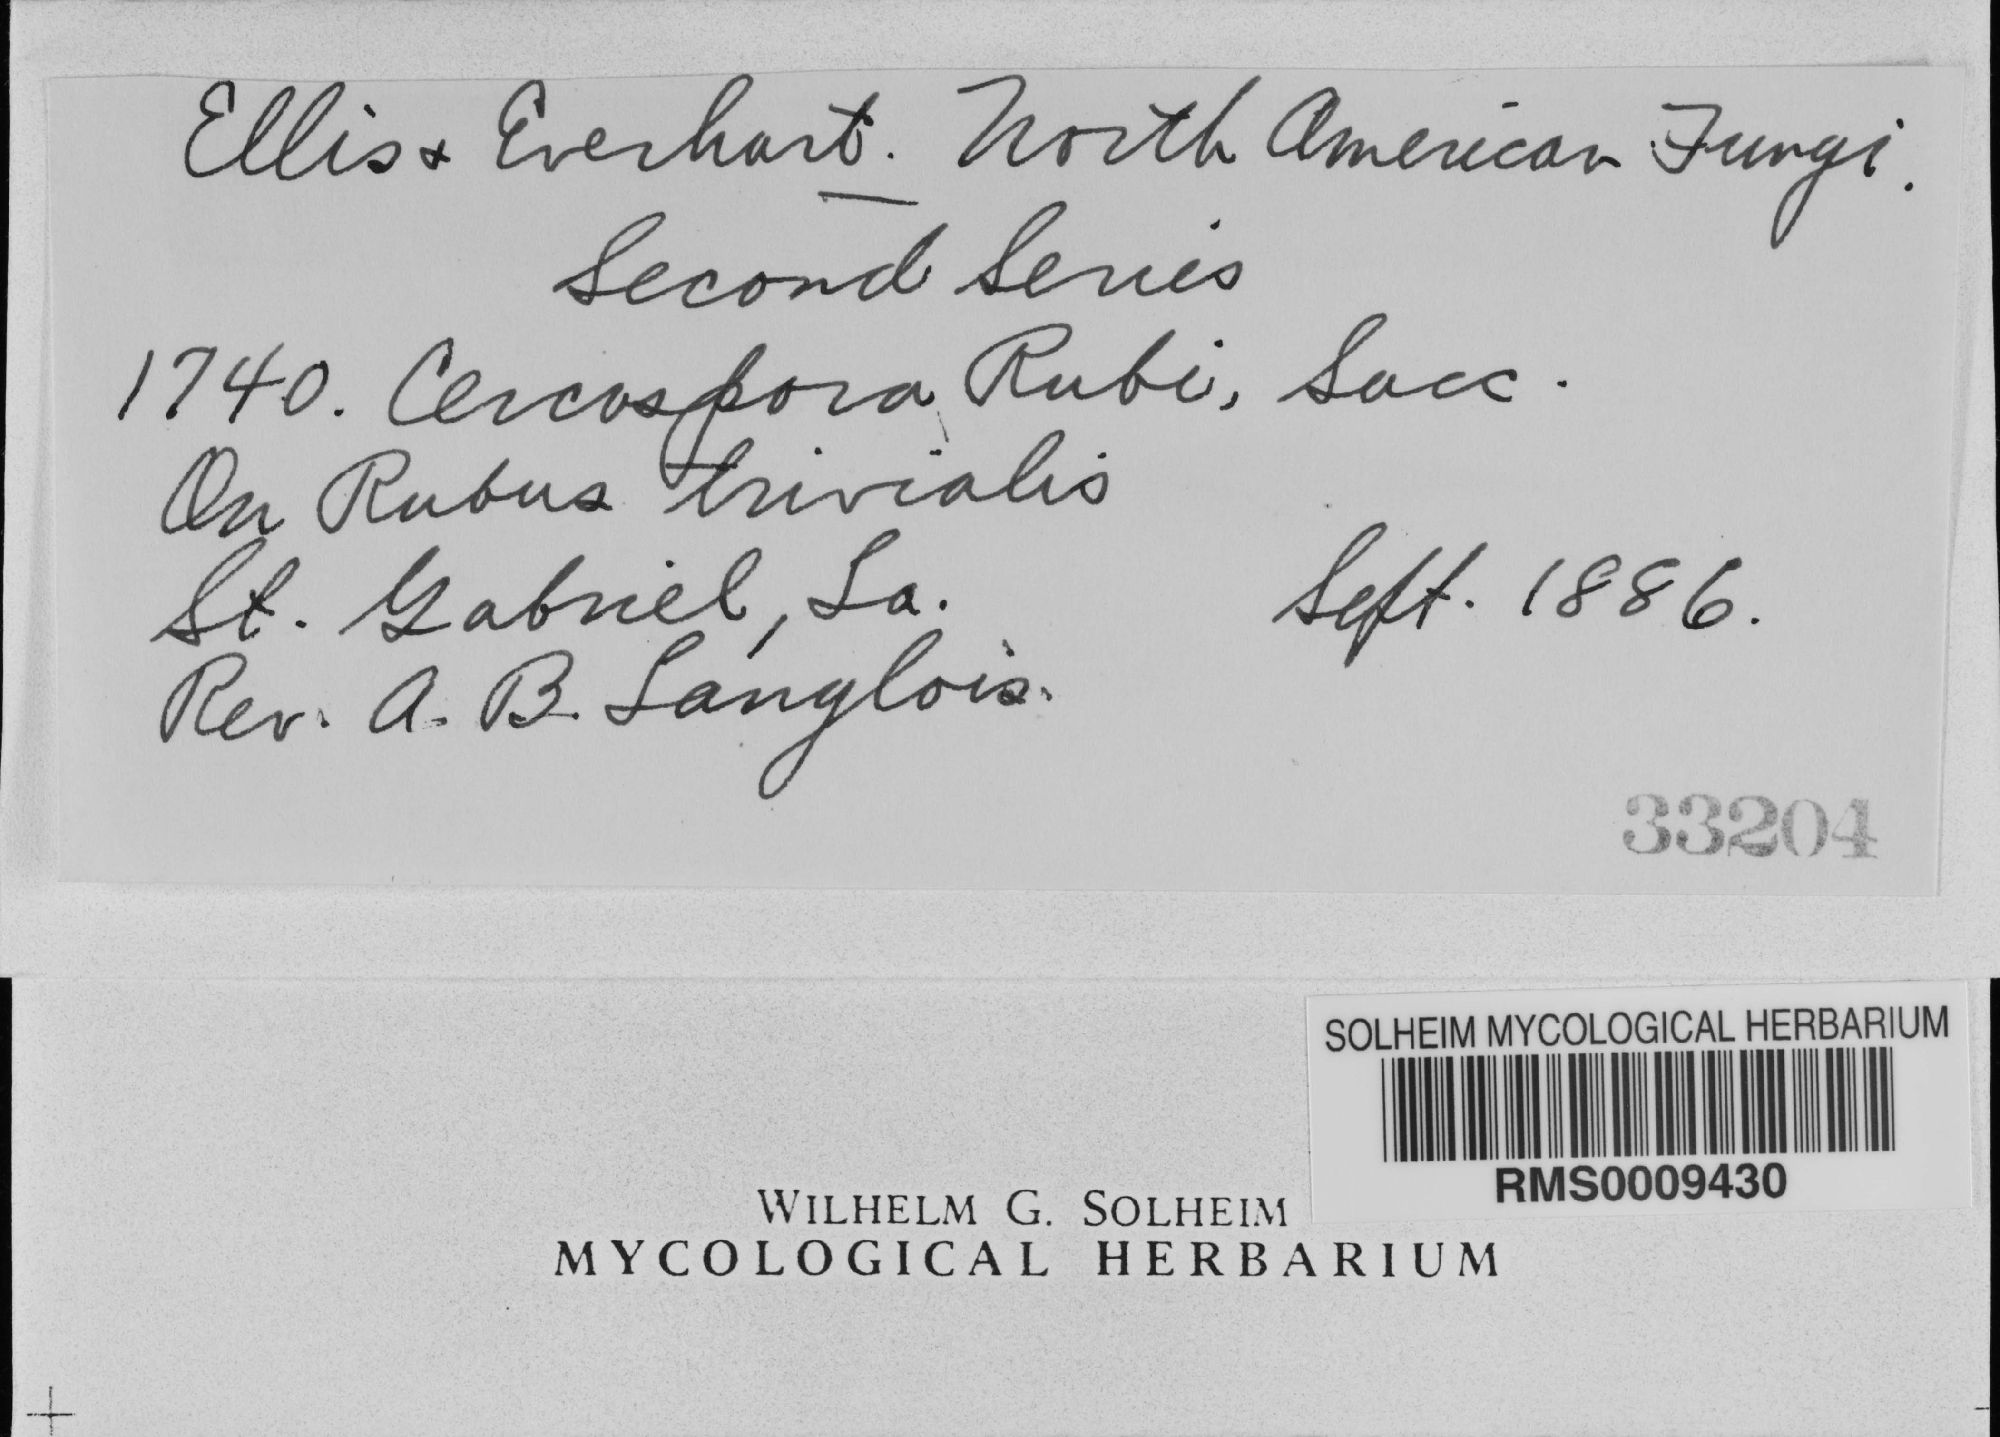 Ellis & Everhart. North American Fungi.
Second Series
1740. Cercospora Rubi, Sacc.
On Rubus trivialis
St. Gabriel, La. Sept. 1886.
Rev. A. B. Langlois.
33204
SOLHEIM MYCOLOGICAL HERBARIUM
RMS0009430
WILHELM G. SOLHEIM
MYCOLOGICAL HERBARIUM